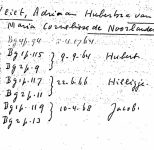 Vliet, Adriaan Hubertsz van
Maria Cornelisse de Noorlander
Bg4p.94 = -11.1764
Bg1p.115 } 9-9-64 Hubert
Bg2p.9
Bg1p.117 } 22-6-66 Hilligje
Bg2p.11
Bg1p.119 } 10-4-68 Jacob
Bg2p.13